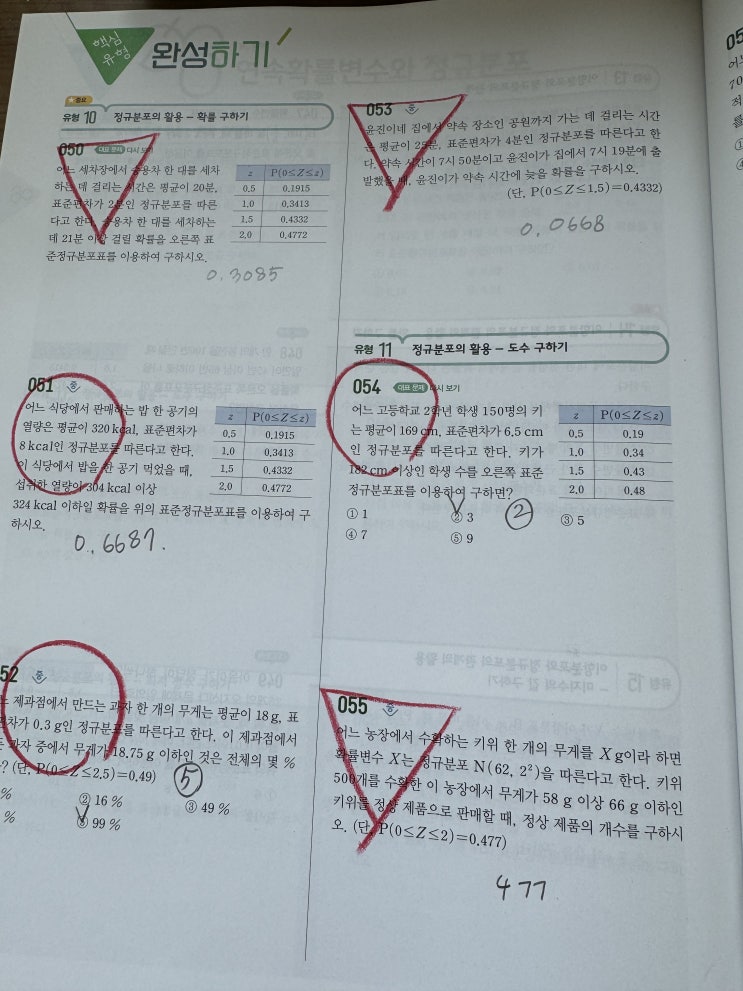 핵심
유형
완성하기
중요
유형 10 정규분포의 활용 - 확률 구하기
050 대표 문제 다시 보기
어느 세차장에서 승용차 한 대를 세차
하는 데 걸리는 시간은 평균이 20분,
표준편차가 2분인 정규분포를 따른
다고 한다. 승용차 한 대를 세차하는
데 21분 이상 걸릴 확률을 오른쪽 표
준정규분포표를 이용하여 구하시오.
z P(0≤Z≤z)
0.5 0.1915
1.0 0.3413
1.5 0.4332
2.0 0.4772
0.3085
051 중
어느 식당에서 판매하는 밥 한 공기의
열량은 평균이 320 kcal, 표준편차가
8 kcal인 정규분포를 따른다고 한다.
이 식당에서 밥을 한 공기 먹었을 때,
섭취한 열량이 304 kcal 이상
324 kcal 이하일 확률을 위의 표준정규분포표를 이용하여 구
하시오.
z P(0≤Z≤z)
0.5 0.1915
1.0 0.3413
1.5 0.4332
2.0 0.4772
0.6687.
52 중
제과점에서 만드는 과자 한 개의 무게는 평균이 18 g, 표
편차가 0.3 g인 정규분포를 따른다고 한다. 이 제과점에서
과자 중에서 무게가 18.75 g 이하인 것은 전체의 몇 %
? (단, P(0≤Z≤2.5)=0.49)
⑤
% ② 16 % ③ 49 %
% ⑤ 99 %
053 중
윤진이네 집에서 약속 장소인 공원까지 가는 데 걸리는 시간
은 평균이 25분, 표준편차가 4분인 정규분포를 따른다고 한
다. 약속 시간이 7시 50분이고 윤진이가 집에서 7시 19분에 출
발했을 때, 윤진이가 약속 시간에 늦을 확률을 구하시오.
(단, P(0≤Z≤1.5)=0.4332)
0.0668
유형 11 정규분포의 활용 - 도수 구하기
054 대표 문제 다시 보기
어느 고등학교 2학년 학생 150명의 키
는 평균이 169 cm, 표준편차가 6.5 cm
인 정규분포를 따른다고 한다. 키가
182 cm 이상인 학생 수를 오른쪽 표준
정규분포표를 이용하여 구하면?
z P(0≤Z≤z)
0.5 0.19
1.0 0.34
1.5 0.43
2.0 0.48
① 1 ② 3 ③ 5
②
④ 7 ⑤ 9
055 중
어느 농장에서 수확하는 키위 한 개의 무게를 X g이라 하면
확률변수 X는 정규분포 N(62, 2²)을 따른다고 한다. 키위
500개를 수확한 이 농장에서 무게가 58 g 이상 66 g 이하인
키위를 정상 제품으로 판매할 때, 정상 제품의 개수를 구하시
오. (단, P(0≤Z≤2)=0.477)
477
05
어느
70